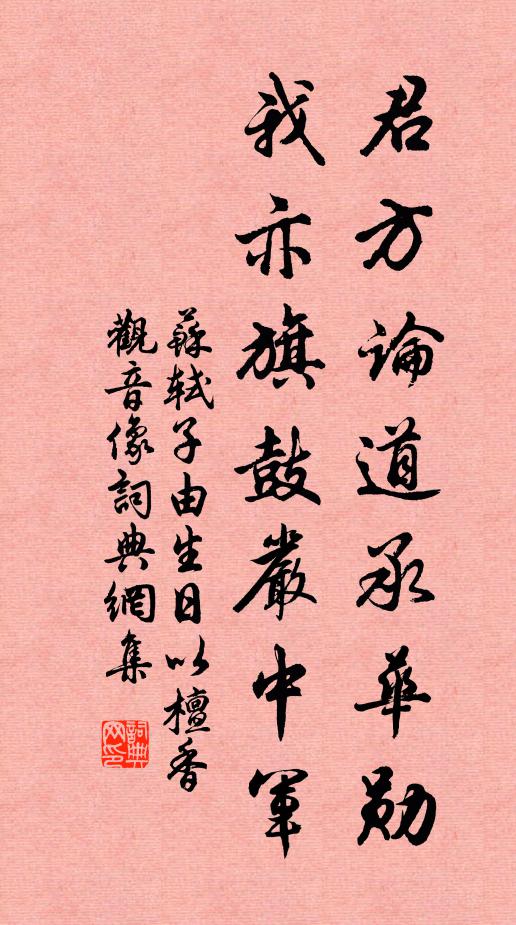 君方論道承華勛
我亦旗鼓嚴中軍
蘇軾子由生日以檀香
觀音像詞典網集
詞典網印